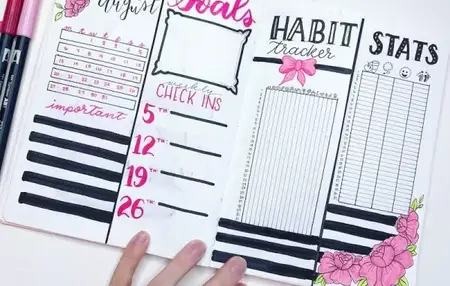 August
m t w t f s s
important
Goals
weekly
CHECK INS
5TH
12TH
19TH
26TH
HABIT
tracker
STATS